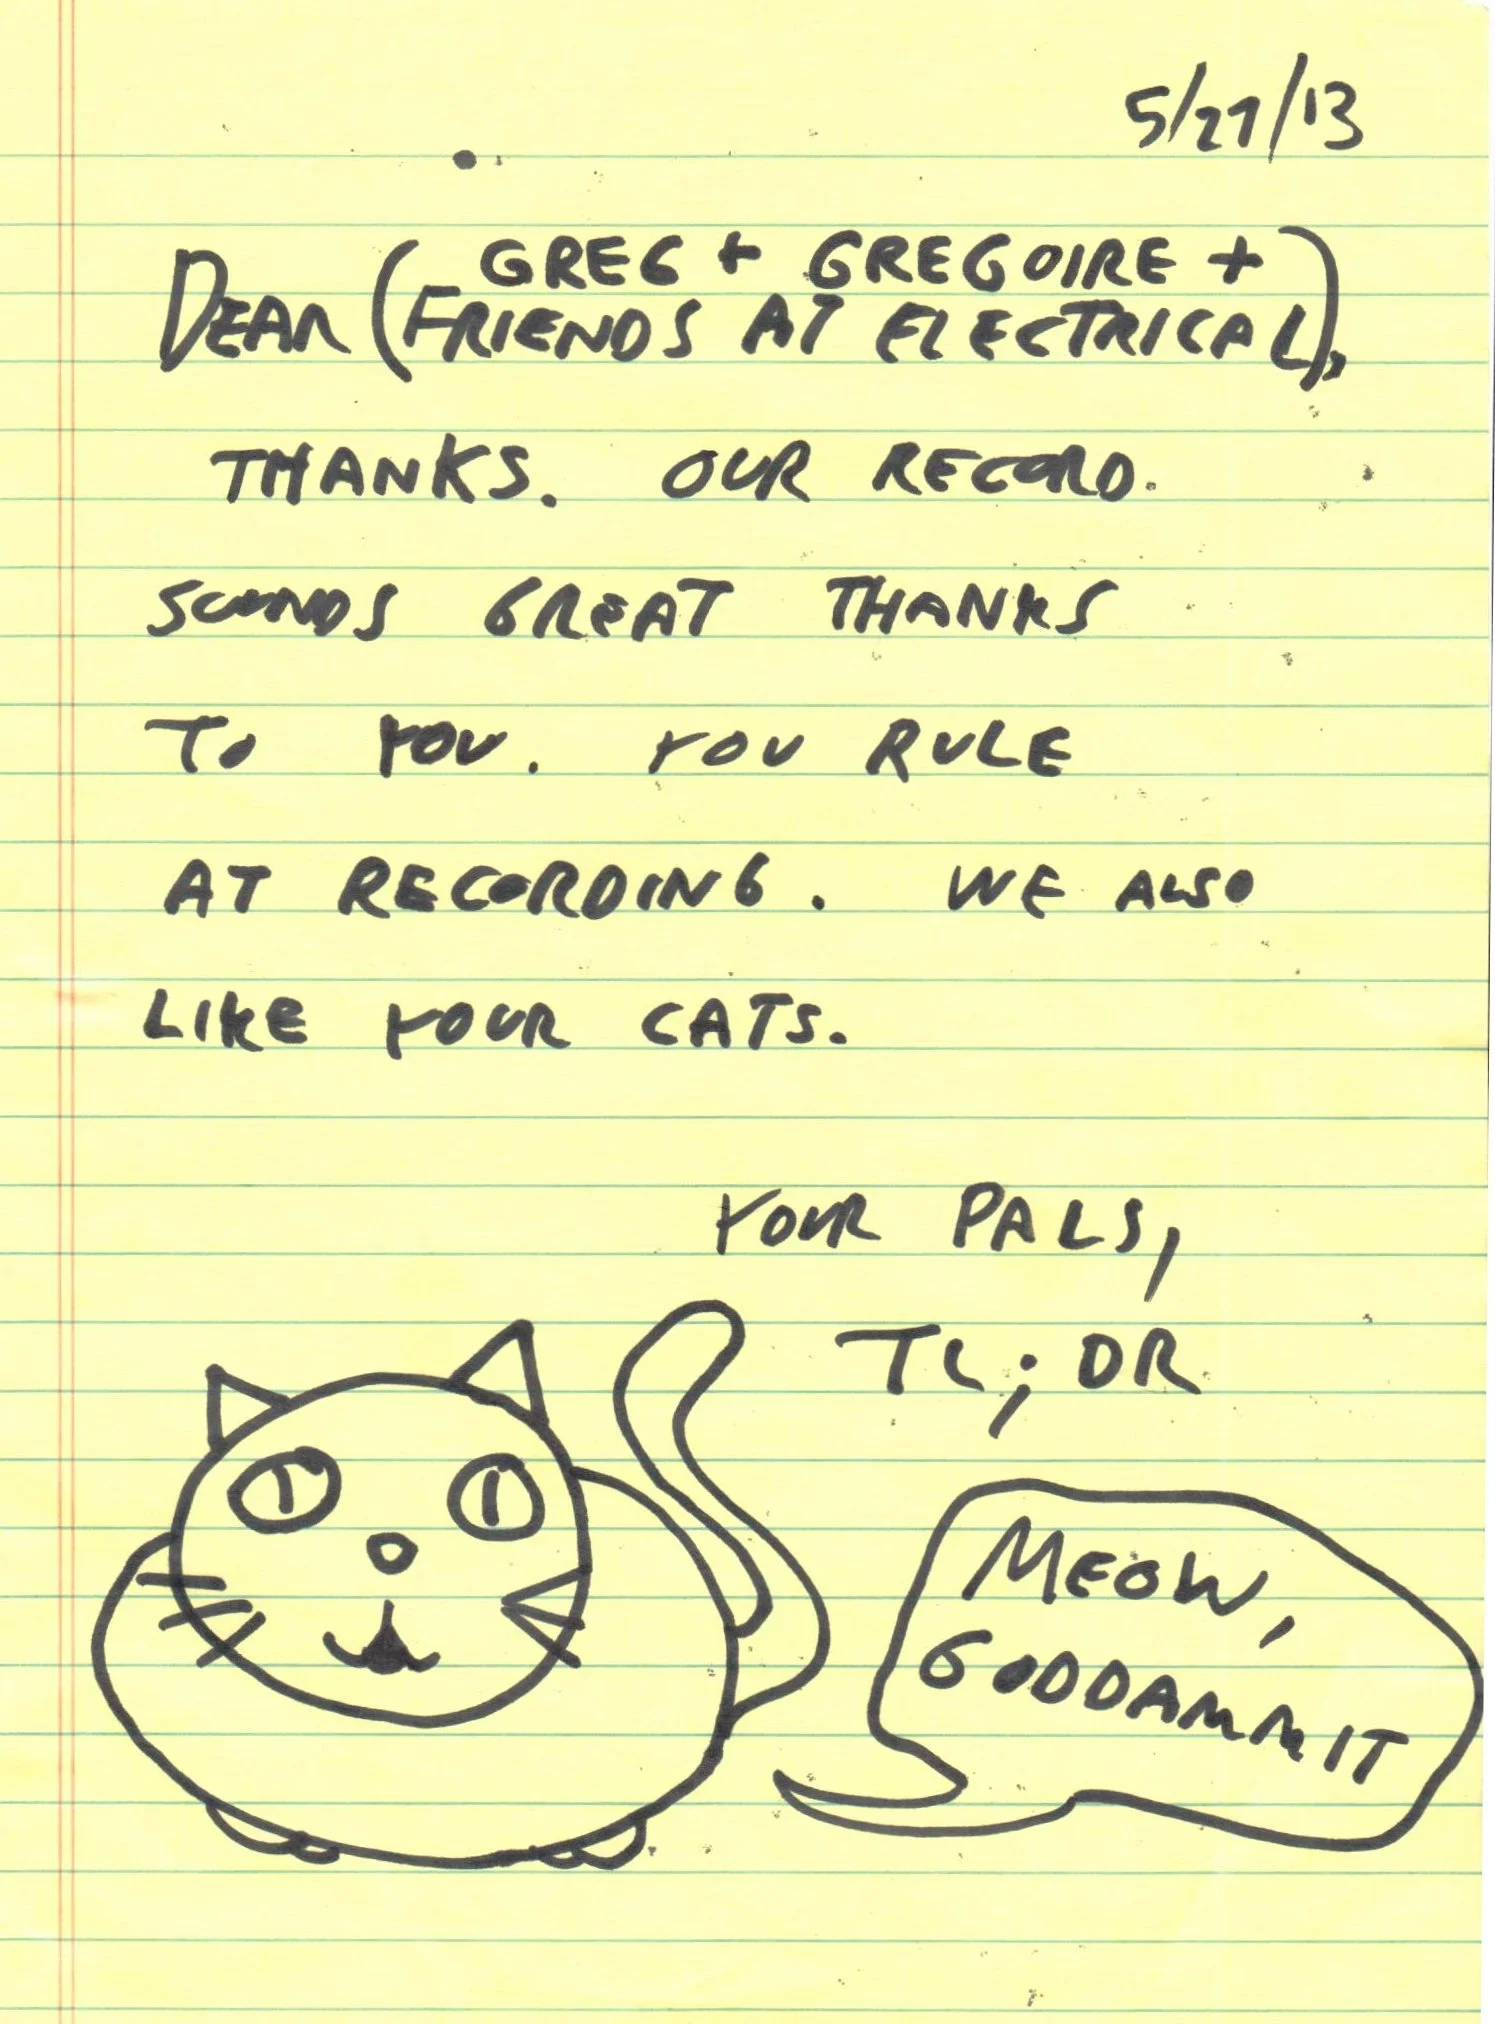 5/27/13
DEAR (GREG + GREGOIRE +
FRIENDS AT ELECTRICAL),
THANKS. OUR RECORD.
SOUNDS GREAT THANKS
TO YOU. YOU RULE
AT RECORDING. WE ALSO
LIKE YOUR CATS.
YOUR PALS,
TL;DR
MEOW,
GODDAMMIT